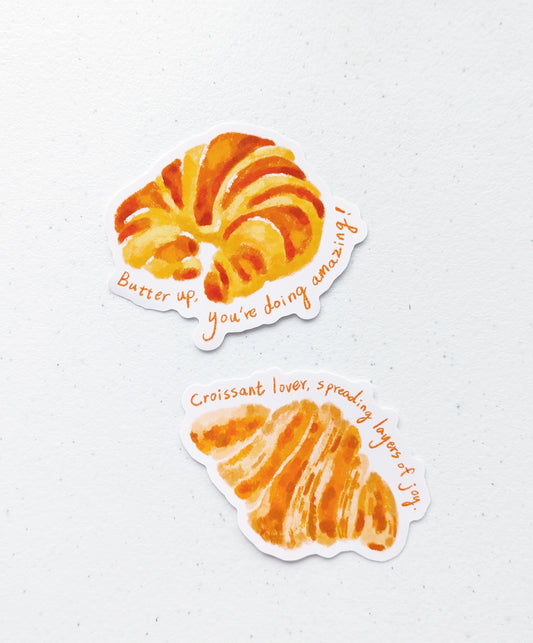 Butter up, you're doing amazing!
Croissant lover, spreading layers of joy.